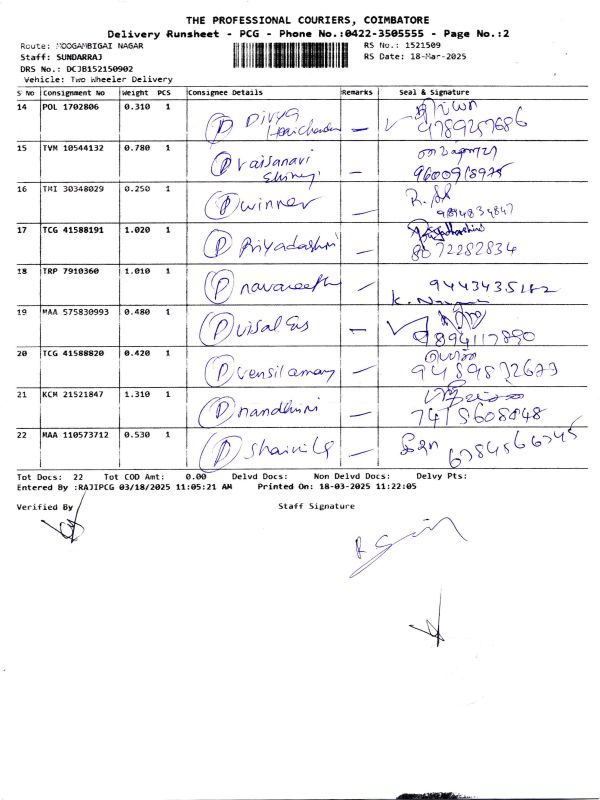 THE PROFESSIONAL COURIERS, COIMBATORE
Delivery Runsheet - PCG - Phone No.:0422-3505555 - Page No.:2
Route: MOOGAMBIGAI NAGAR RS No.: 1521509
Staff: SUNDARRAJ RS Date: 18-Mar-2025
DRS No.: DCJB152150902
Vehicle: Two Wheeler Delivery
S No Consignment No Weight PCS Consignee Details Remarks Seal & Signature
14 POL 1702806 0.310 1 P Divya
Haricharan — 9789257686
15 TVM 10544132 0.780 1 P Vaisanavi
9600918975
16 TMI 30348029 0.250 1 P winner — 9894834847
17 TCG 41588191 1.020 1 P Priyadashni — 8072282834
18 TRP 7910360 1.010 1 P — 9443435182
19 MAA 575830993 0.480 1 P — 9894117890
20 TCG 41588820 0.420 1 P — 9489872673
21 KCM 21521847 1.310 1 P nandhini —
22 MAA 110573712 0.530 1 P —
Tot Docs: 22 Tot COD Amt: 0.00 Delvd Docs: Non Delvd Docs: Delvy Pts:
Entered By :RAJIPCG 03/18/2025 11:05:21 AM Printed On: 18-03-2025 11:22:05
Verified By Staff Signature